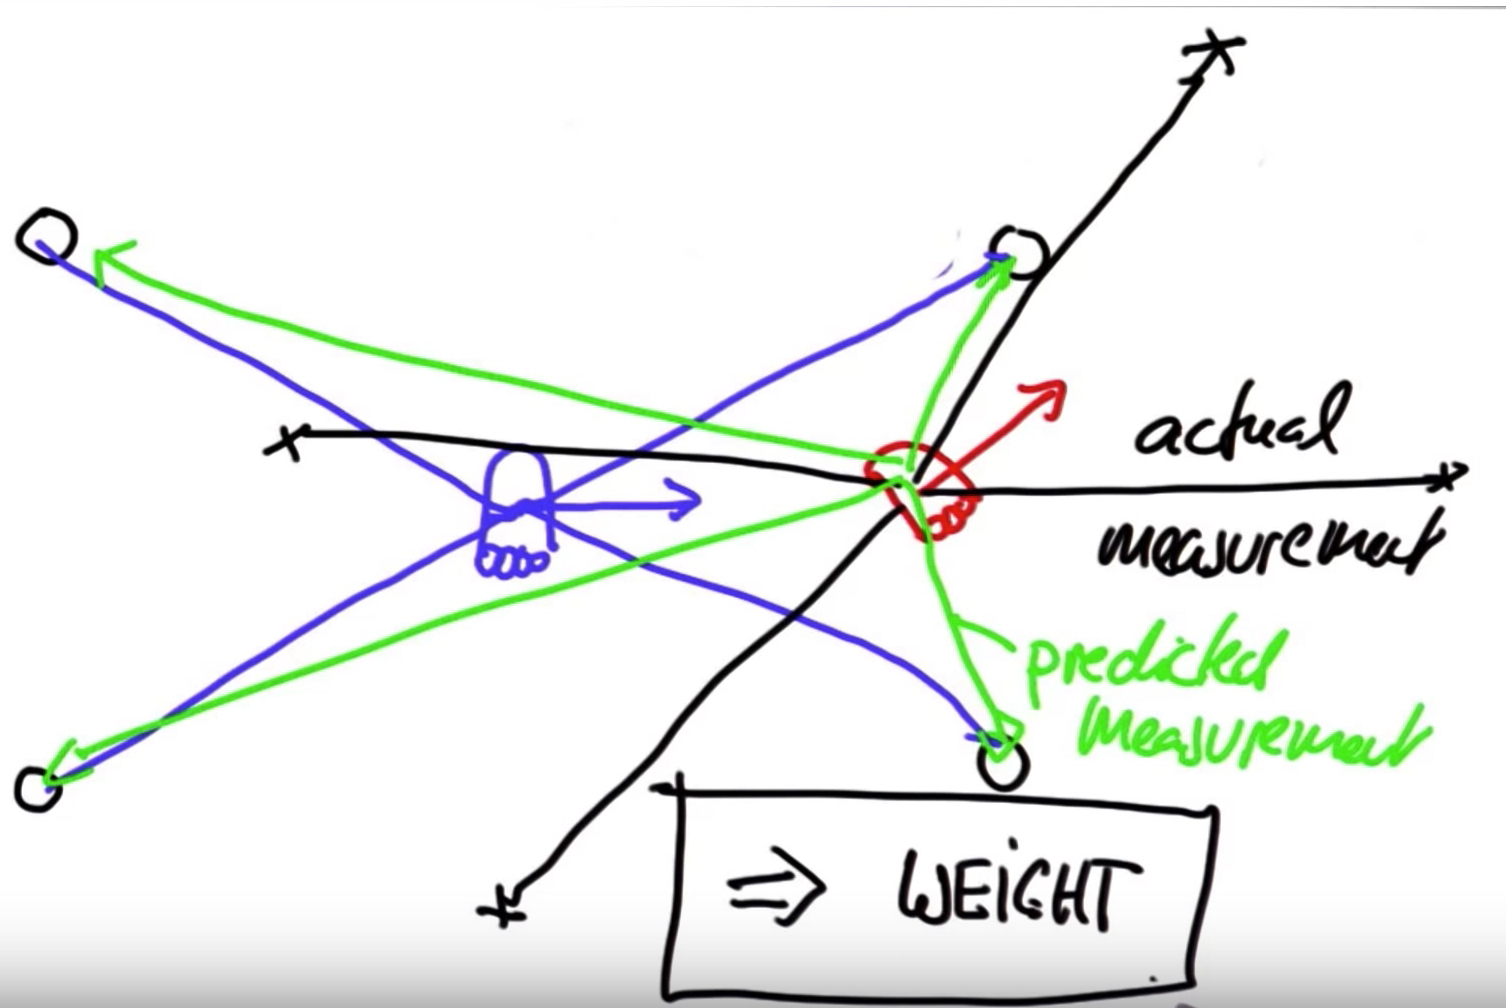 actual
measurement
predicted
measurement
⇒ WEiGHT